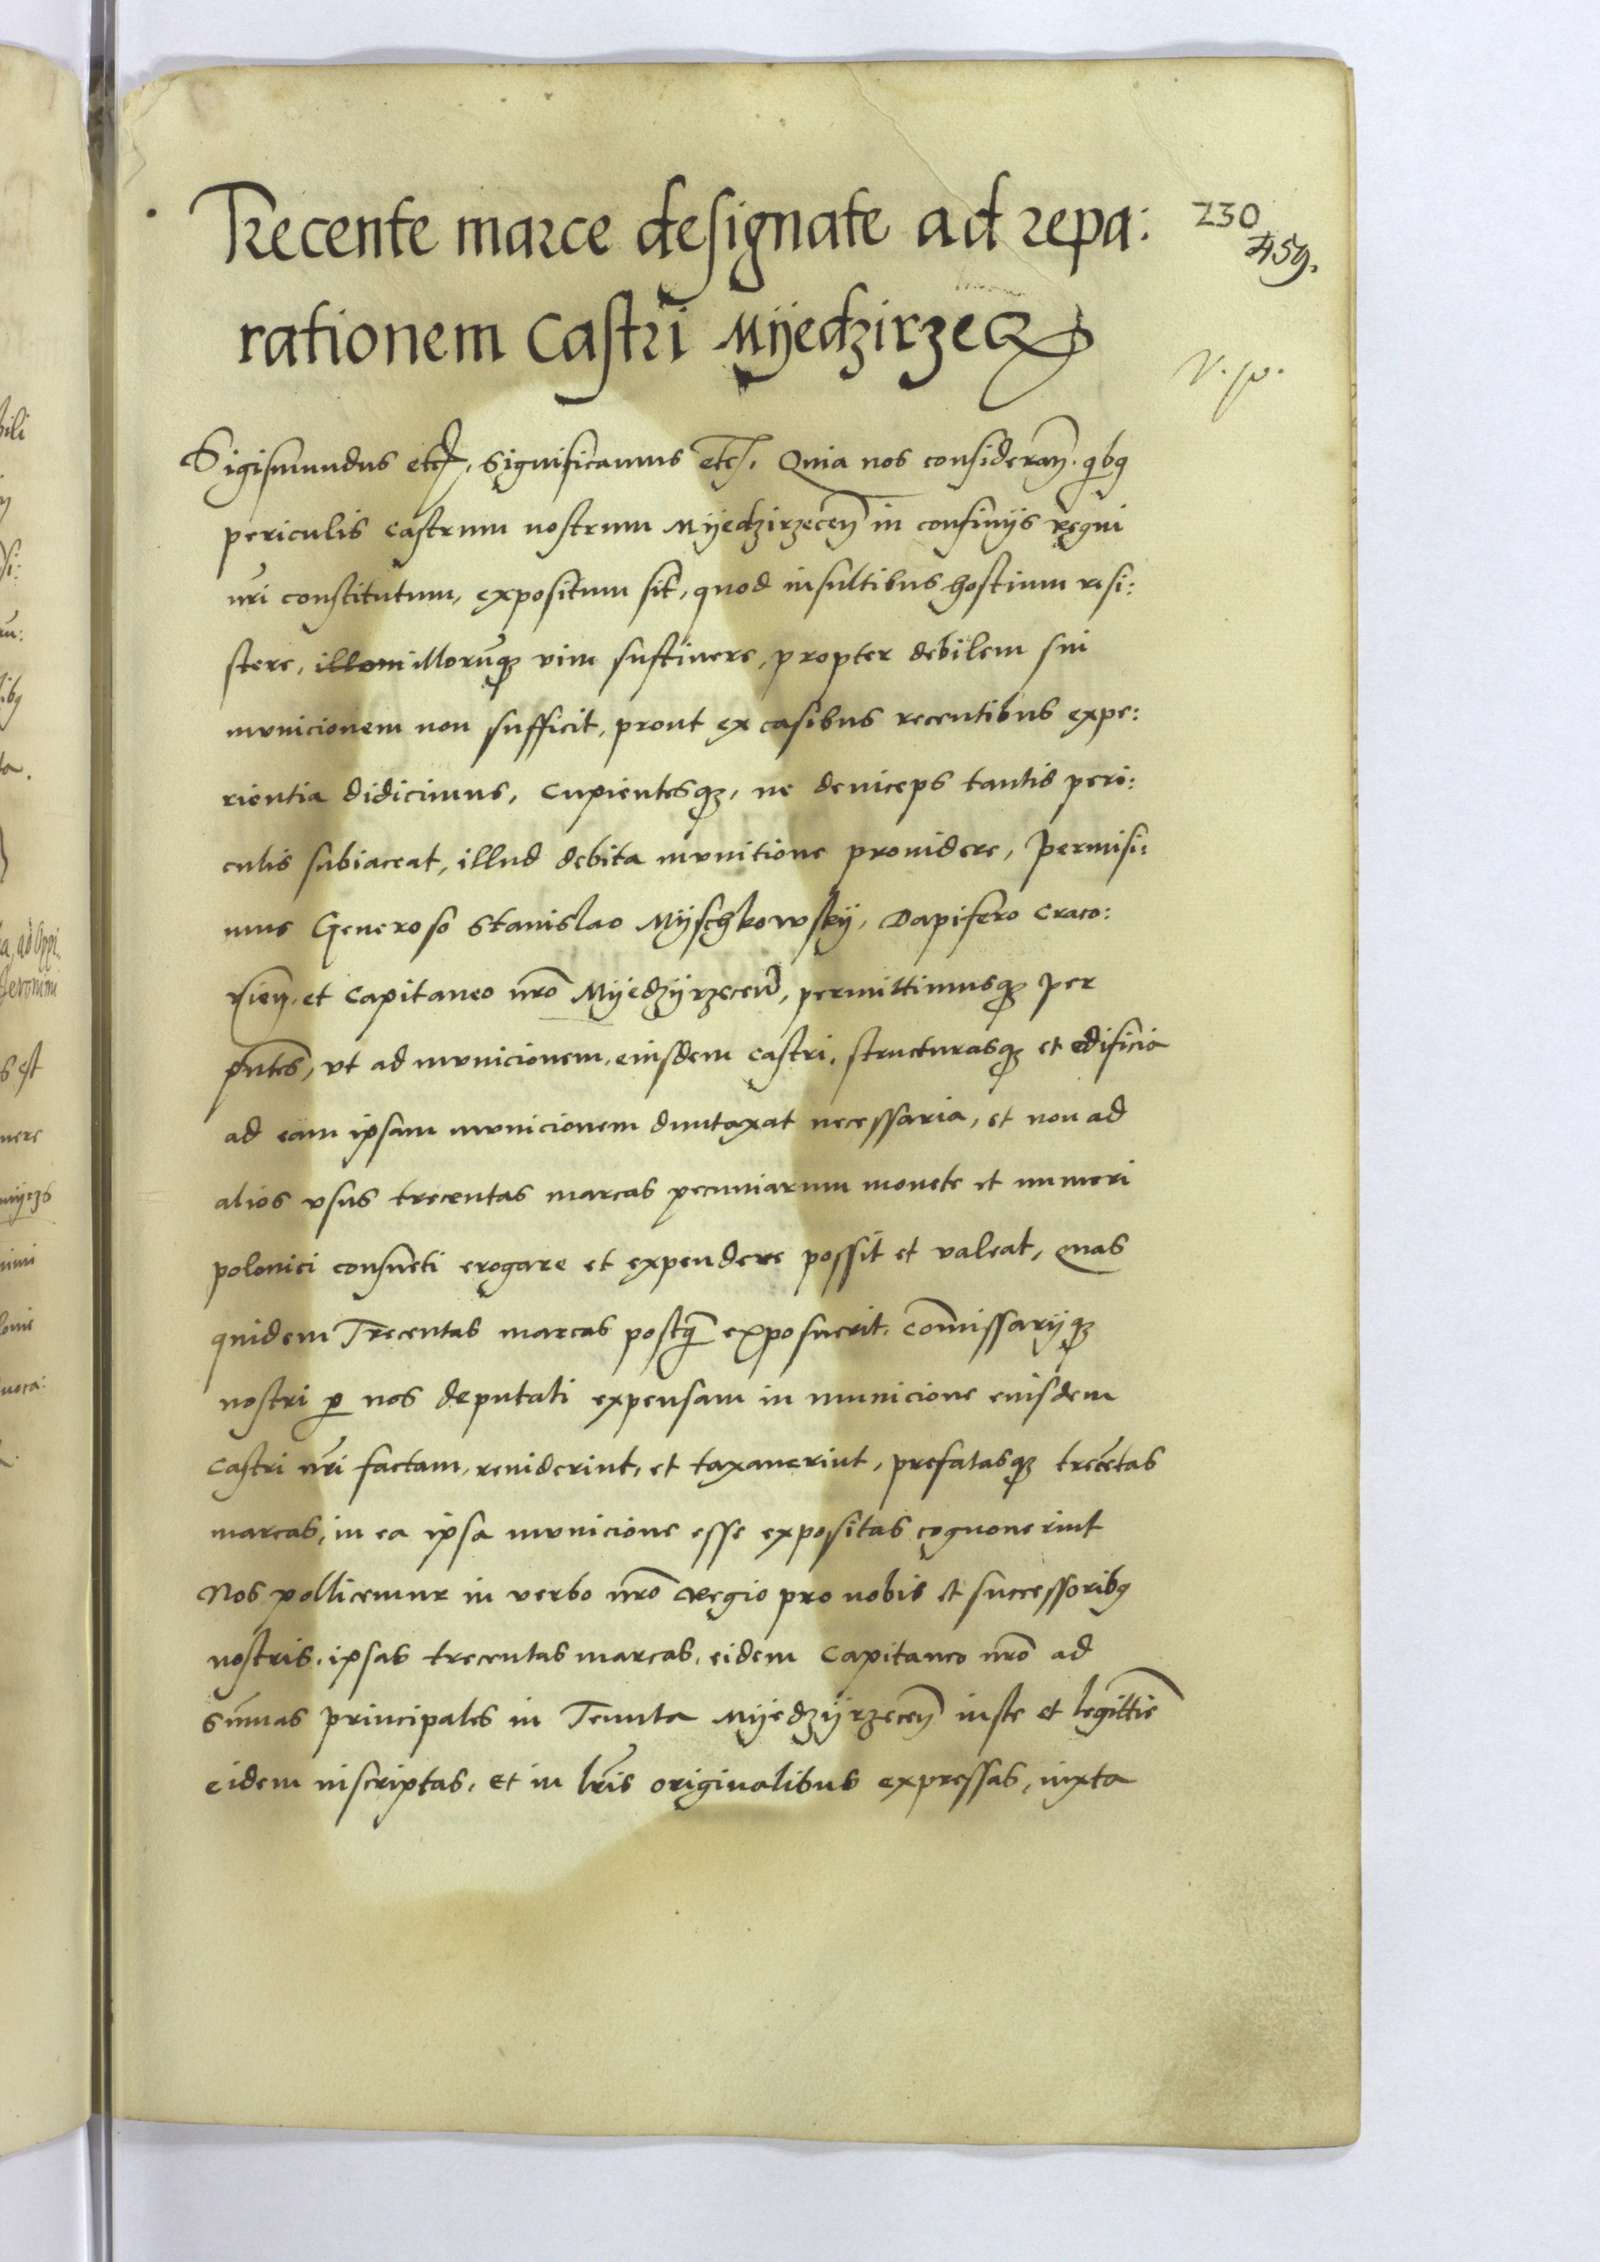 Trecente marce designate ad repa:
230
459.
rationem Castri Myedzirzecz
V. p.
Sigismundus etc, Significamus etc. Quia nos consideran. qbq
periculis castrum nostrum Myedzirzecen in confinijs regni
nri constitutum, expositum sit, quod insultibus hostium resi:
stere, illom illorumq vim sustinere, propter debilem sui
municionem non sufficit, prout ex casibus recentibus expe:
rientia didicimus, Cupientesq, ne deinceps tantis peri:
culis subiaceat, illud debita munitione prouidere, Permisi:
mus Generoso Stanislao Myschkowsky, Dapifero Craco:
sien. et Capitaneo nro Myedzyrzecen, permittimusq per
pntes, vt ad municionem eiusdem castri, structurasq et edificia
ad eam ipsam municionem duntaxat necessaria, et non ad
alios vsus trecentas marcas pecuniarum monete et numeri
polonici consueti erogare et expendere possit et valeat, Quas
quidem Trecentas marcas postq exposuerit, Commissarijq
nostri p nos deputati expensam in municione eiusdem
Castri nri factam, reuiderint, et taxauerint, prefatasq trecetas
marcas, in ea ipsa municione esse expositas cognouerint
Nos pollicemur in verbo nro Regio pro nobis et successoribq
nostris, ipsas trecentas marcas, eidem Capitaneo nro ad
sumas principales in Tenuta Myedzyrzecen iuste et legittie
eidem inscriptas, et in lris originalibus expressas, iuxta